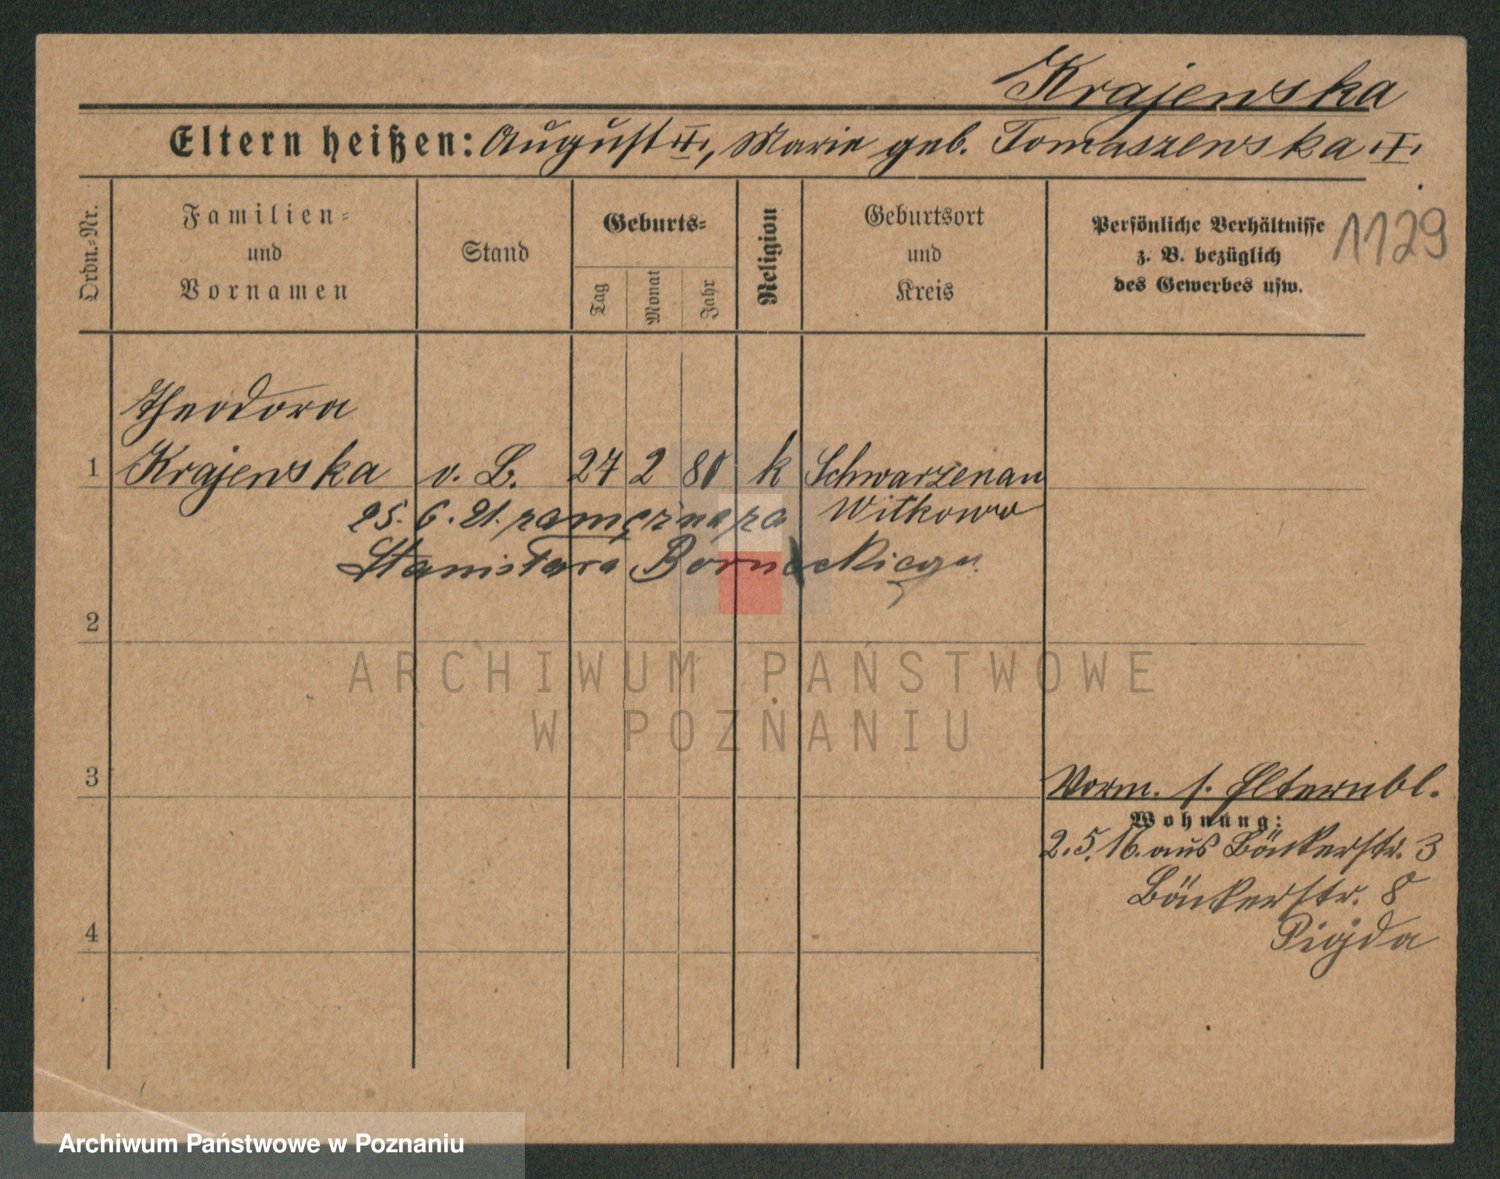 Krajewska
Eltern heißen: August II, Marie geb. Tomaszewska I.
Ordn.-Nr.
Familien-
und
Vornamen
Stand
Geburts-
Tag
Monat
Jahr
Religion
Geburtsort
und
Kreis
Persönliche Verhältnisse
z. B. bezüglich
des Gewerbes usw.
1129
Theodora
1 Krajewska o. B. 24 2 80 k Schwarzenau
Witkowo
25. 6. 21. zamężna za
Stanisława
2
3
4
Vorm. s. Elternbl.
Wohnung:
2.5.16. aus Bäckerstr. 3
Bäckerstr. 8
Pigda
ARCHIWUM PAŃSTWOWE
W POZNANIU
Archiwum Państwowe w Poznaniu